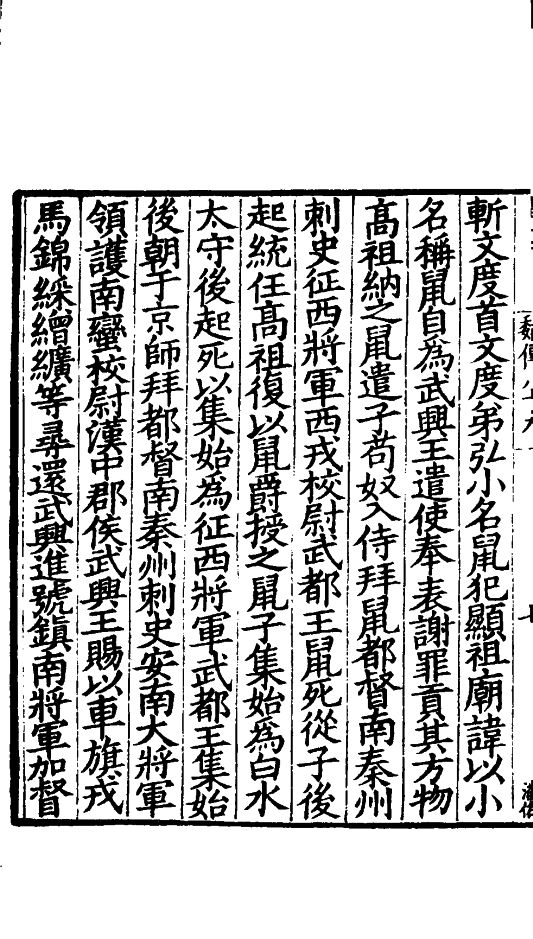 斬文度首文度弟弘小名鼠犯顯祖廟諱以小
名稱鼠自為武興王遣使奉表謝罪貢其方物
髙祖納之鼠遣子苟奴入侍拜鼠都督南秦州
刺史征西將軍西戎校尉武都王鼠死從子後
起統任髙祖復以鼠爵授之鼠子集始為白水
太守後起死以集始為征西將軍武都王集始
後朝于京師拜都督南秦州刺史安南大將軍
領護南蠻校尉漢中郡侯武興王賜以車旗戎
馬錦綵繒纊等尋還武興進號鎮南將軍加督